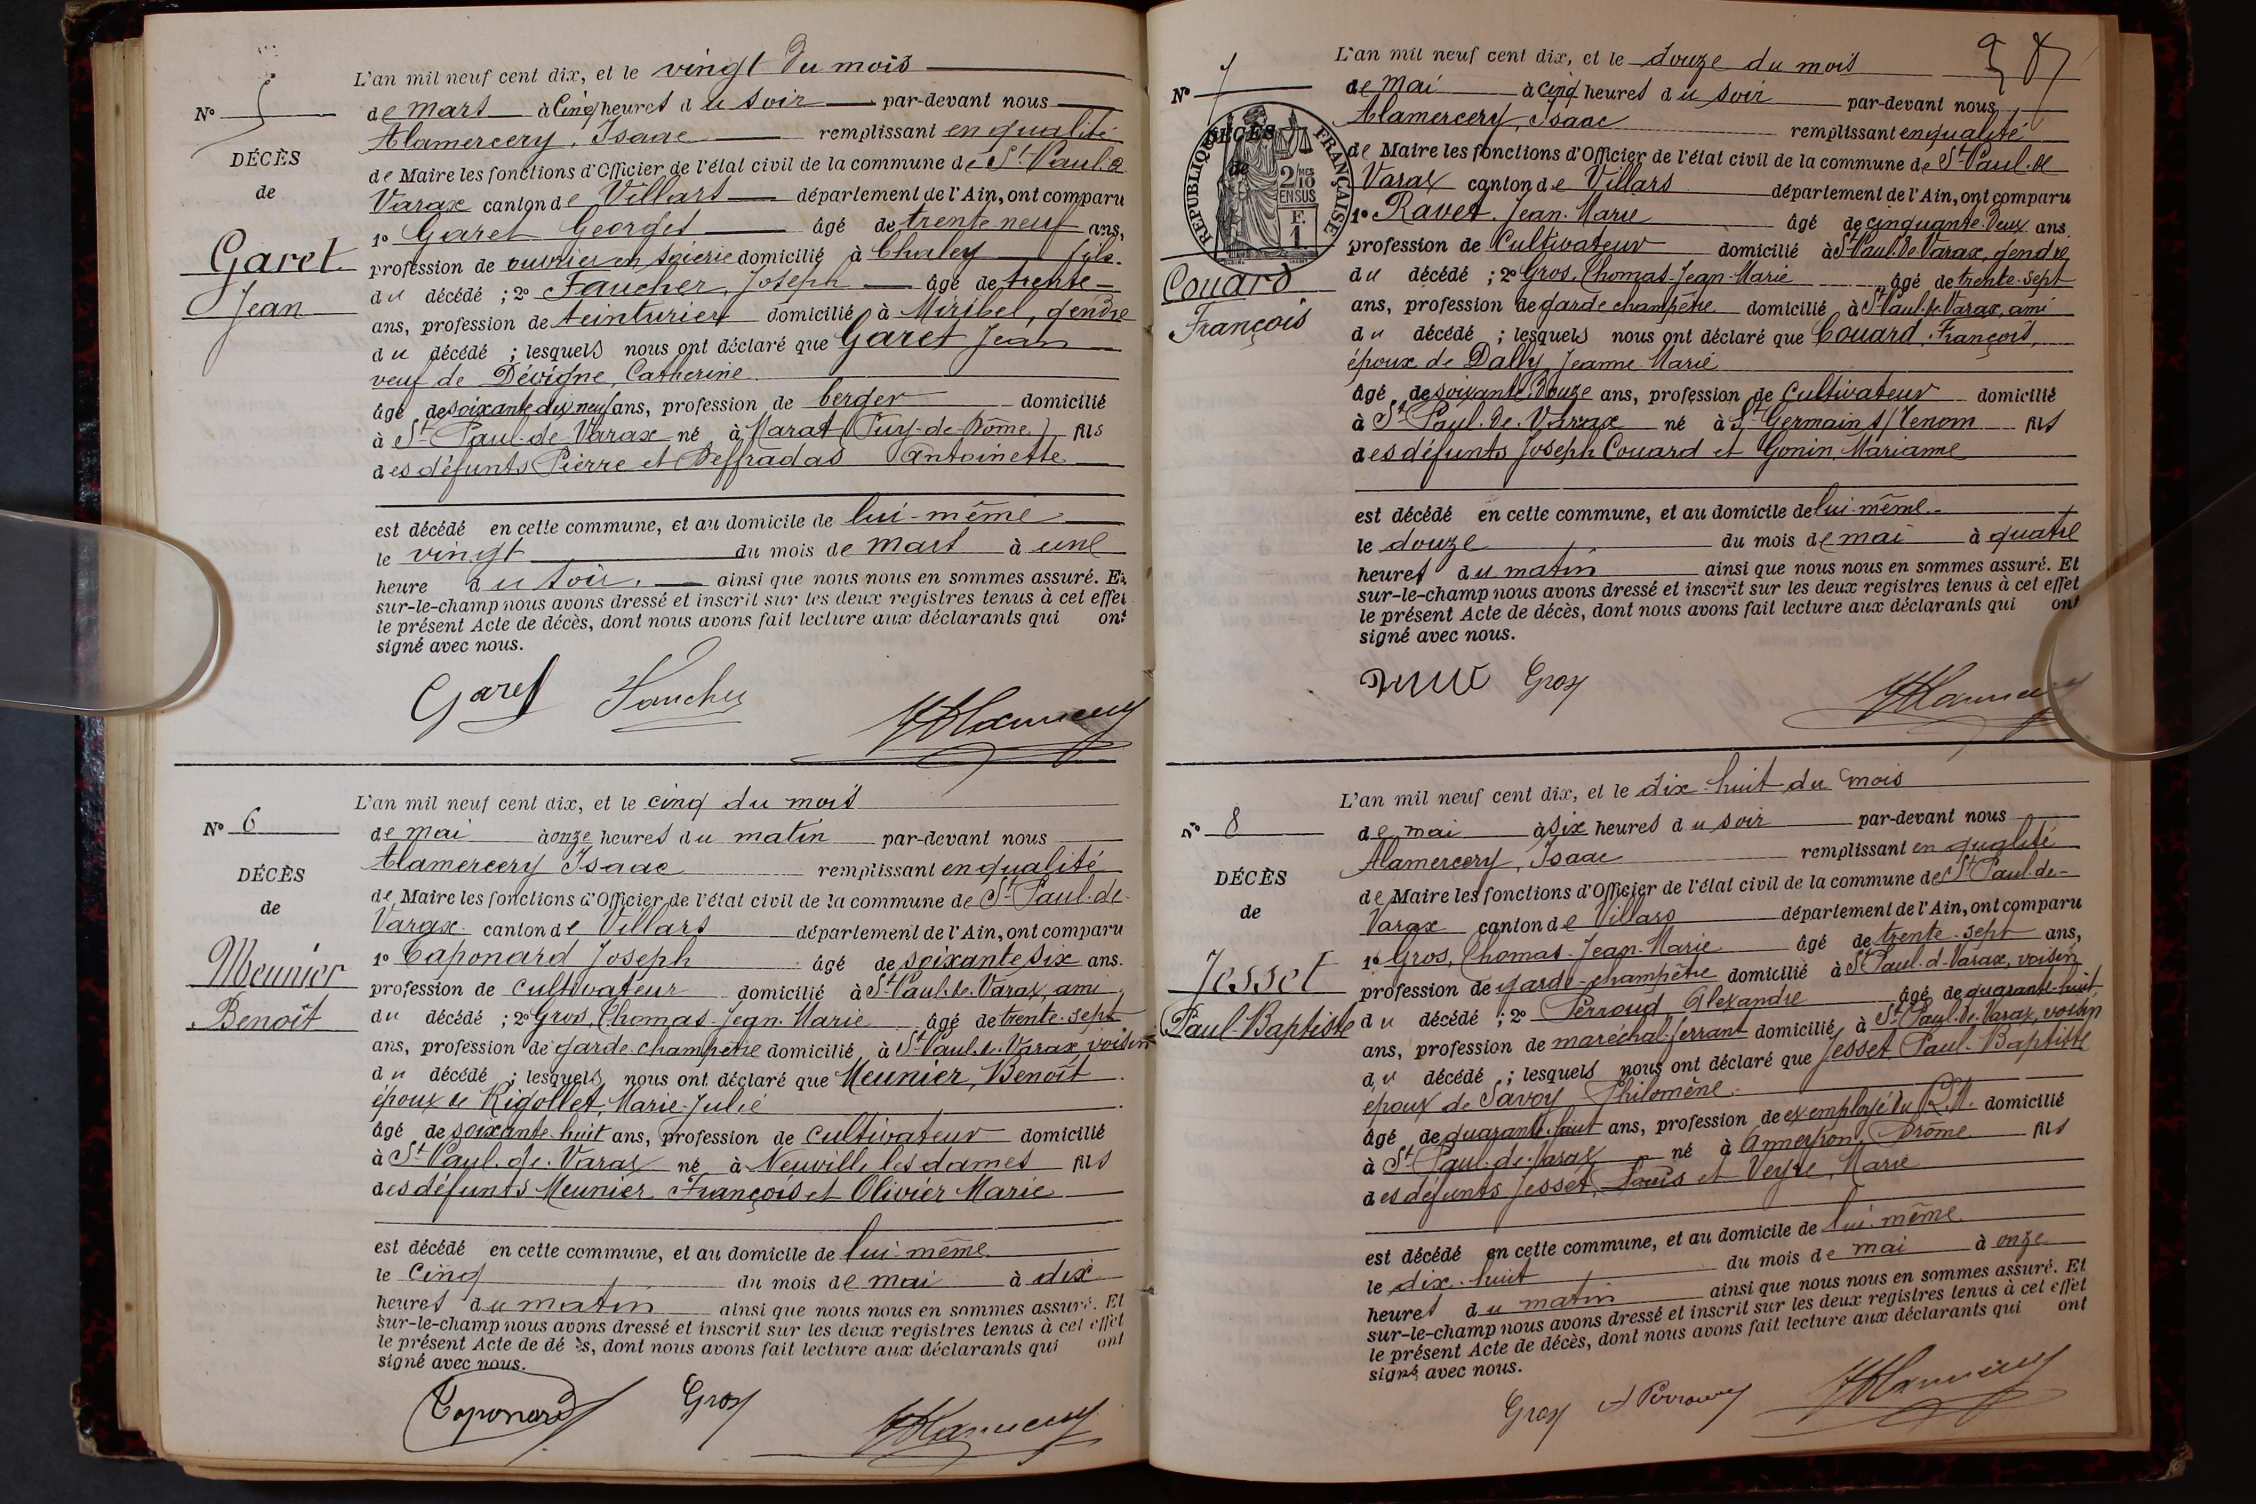 N° 5
DÉCÈS
de
Garet
Jean
L'an mil neuf cent dix, et le vingt du mois
de mars à cinq heures du soir par-devant nous
Alamercery, Isaac remplissant en qualité
de Maire les fonctions d'Officier de l'état civil de la commune de St Paul de
Varax canton de Villars département de l'Ain, ont comparu
1° Garet Georges âgé de trente neuf ans,
profession de ouvrier en soierie domicilié à Chaley fils
du décédé ; 2° Faucher, Joseph âgé de trente
ans, profession de teinturier domicilié à Miribel, gendre
du décédé ; lesquels nous ont déclaré que Garet Jean
veuf de Dévigne, Catherine
âgé de soixante dix neuf ans, profession de berger domicilié
à St Paul-de-Varax né à Marat (Puy-de-Dôme) fils
des défunts Pierre et Deffradas Antoinette
est décédé en cette commune, et au domicile de lui-même
le vingt du mois de mars à une
heure du soir. ainsi que nous nous en sommes assuré. Et
sur-le-champ nous avons dressé et inscrit sur les deux registres tenus à cet effet
le présent Acte de décès, dont nous avons fait lecture aux déclarants qui ont
signé avec nous.
Garet Faucher Alamercery
N° 6
DÉCÈS
de
Meunier
Benoît
L'an mil neuf cent dix, et le cinq du mois
de mai à onze heures du matin par-devant nous
Alamercery Isaac remplissant en qualité
de Maire les fonctions d'Officier de l'état civil de la commune de St Paul-de-
Varax canton de Villars département de l'Ain, ont comparu
1° Caponard Joseph âgé de soixante six ans.
profession de cultivateur domicilié à St Paul-de-Varax, ami
du décédé ; 2° Gros, Thomas-Jean-Marie âgé de trente-sept
ans, profession de garde-champêtre domicilié à St Paul-de-Varax, voisin
du décédé ; lesquels nous ont déclaré que Meunier, Benoît
époux de Rigollet, Marie-Julie
âgé de soixante-huit ans, profession de cultivateur domicilié
à St Paul-de-Varax né à Neuville les dames fils
des défunts Meunier François et Olivier Marie
est décédé en cette commune, et au domicile de lui-même
le cinq du mois de mai à dix
heures du matin ainsi que nous nous en sommes assuré. Et
sur-le-champ nous avons dressé et inscrit sur les deux registres tenus à cet effet
le présent Acte de dé ès, dont nous avons fait lecture aux déclarants qui ont
signé avec nous.
Caponard Gros Alamercery
N° 7
DÉCÈS
de
RÉPUBLIQUE FRANÇAISE
2/10 EN SUS
F.
1
Couard
François
L'an mil neuf cent dix, et le douze du mois
de mai à cinq heures du soir par-devant nous
Alamercery, Isaac remplissant en qualité
de Maire les fonctions d'Officier de l'état civil de la commune de St Paul-de
Varax canton de Villars département de l'Ain, ont comparu
1° Ravet, Jean-Marie âgé de cinquante-deux ans.
profession de Cultivateur domicilié à St Paul-de-Varax, gendre
du décédé ; 2° Gros, Thomas-Jean-Marie âgé de trente-sept
ans, profession de garde champêtre domicilié à St Paul-de-Varax, ami
du décédé ; lesquels nous ont déclaré que Couard, François,
époux de Dally, Jeanne-Marie
âgé de soixante-douze ans, profession de cultivateur domicilié
à St Paul-de-Varax né à St Germain s/Renom fils
des défunts Joseph Couard et Gonin, Marianne
est décédé en cette commune, et au domicile de lui-même.
le douze du mois de mai à quatre
heures du matin ainsi que nous nous en sommes assuré. Et
sur-le-champ nous avons dressé et inscrit sur les deux registres tenus à cet effet
le présent Acte de décès, dont nous avons fait lecture aux déclarants qui ont
signé avec nous.
Gros Alamercery
N° 8
DÉCÈS
de
Jesset
Paul-Baptiste
L'an mil neuf cent dix, et le dix-huit du mois
de mai à six heures du soir par-devant nous
Alamercery, Isaac remplissant en qualité
de Maire les fonctions d'Officier de l'état civil de la commune de St Paul-de-
Varax canton de Villars département de l'Ain, ont comparu
1° Gros, Thomas-Jean-Marie âgé de trente-sept ans,
profession de garde-champêtre domicilié à St Paul-d-Varax, voisin
du décédé ; 2° Perroud Alexandre âgé de quarante-huit
ans, profession de maréchal-ferrant domicilié à St Paul-de-Varax, voisin
du décédé ; lesquels nous ont déclaré que Jesset, Paul-Baptiste
époux de Savoy, Philomène.
âgé de quarante-huit ans, profession de ex-employé du P.L.M. domicilié
à St Paul-de-Varax né à Anneyron, Drôme fils
des défunts Jesset, Louis et Veyre, Marie
est décédé en cette commune, et au domicile de lui-même
le dix-huit du mois de mai à onze
heures du matin ainsi que nous nous en sommes assuré. Et
sur-le-champ nous avons dressé et inscrit sur les deux registres tenus à cet effet
le présent Acte de décès, dont nous avons fait lecture aux déclarants qui ont
signé avec nous.
Gros A Perroud Alamercery